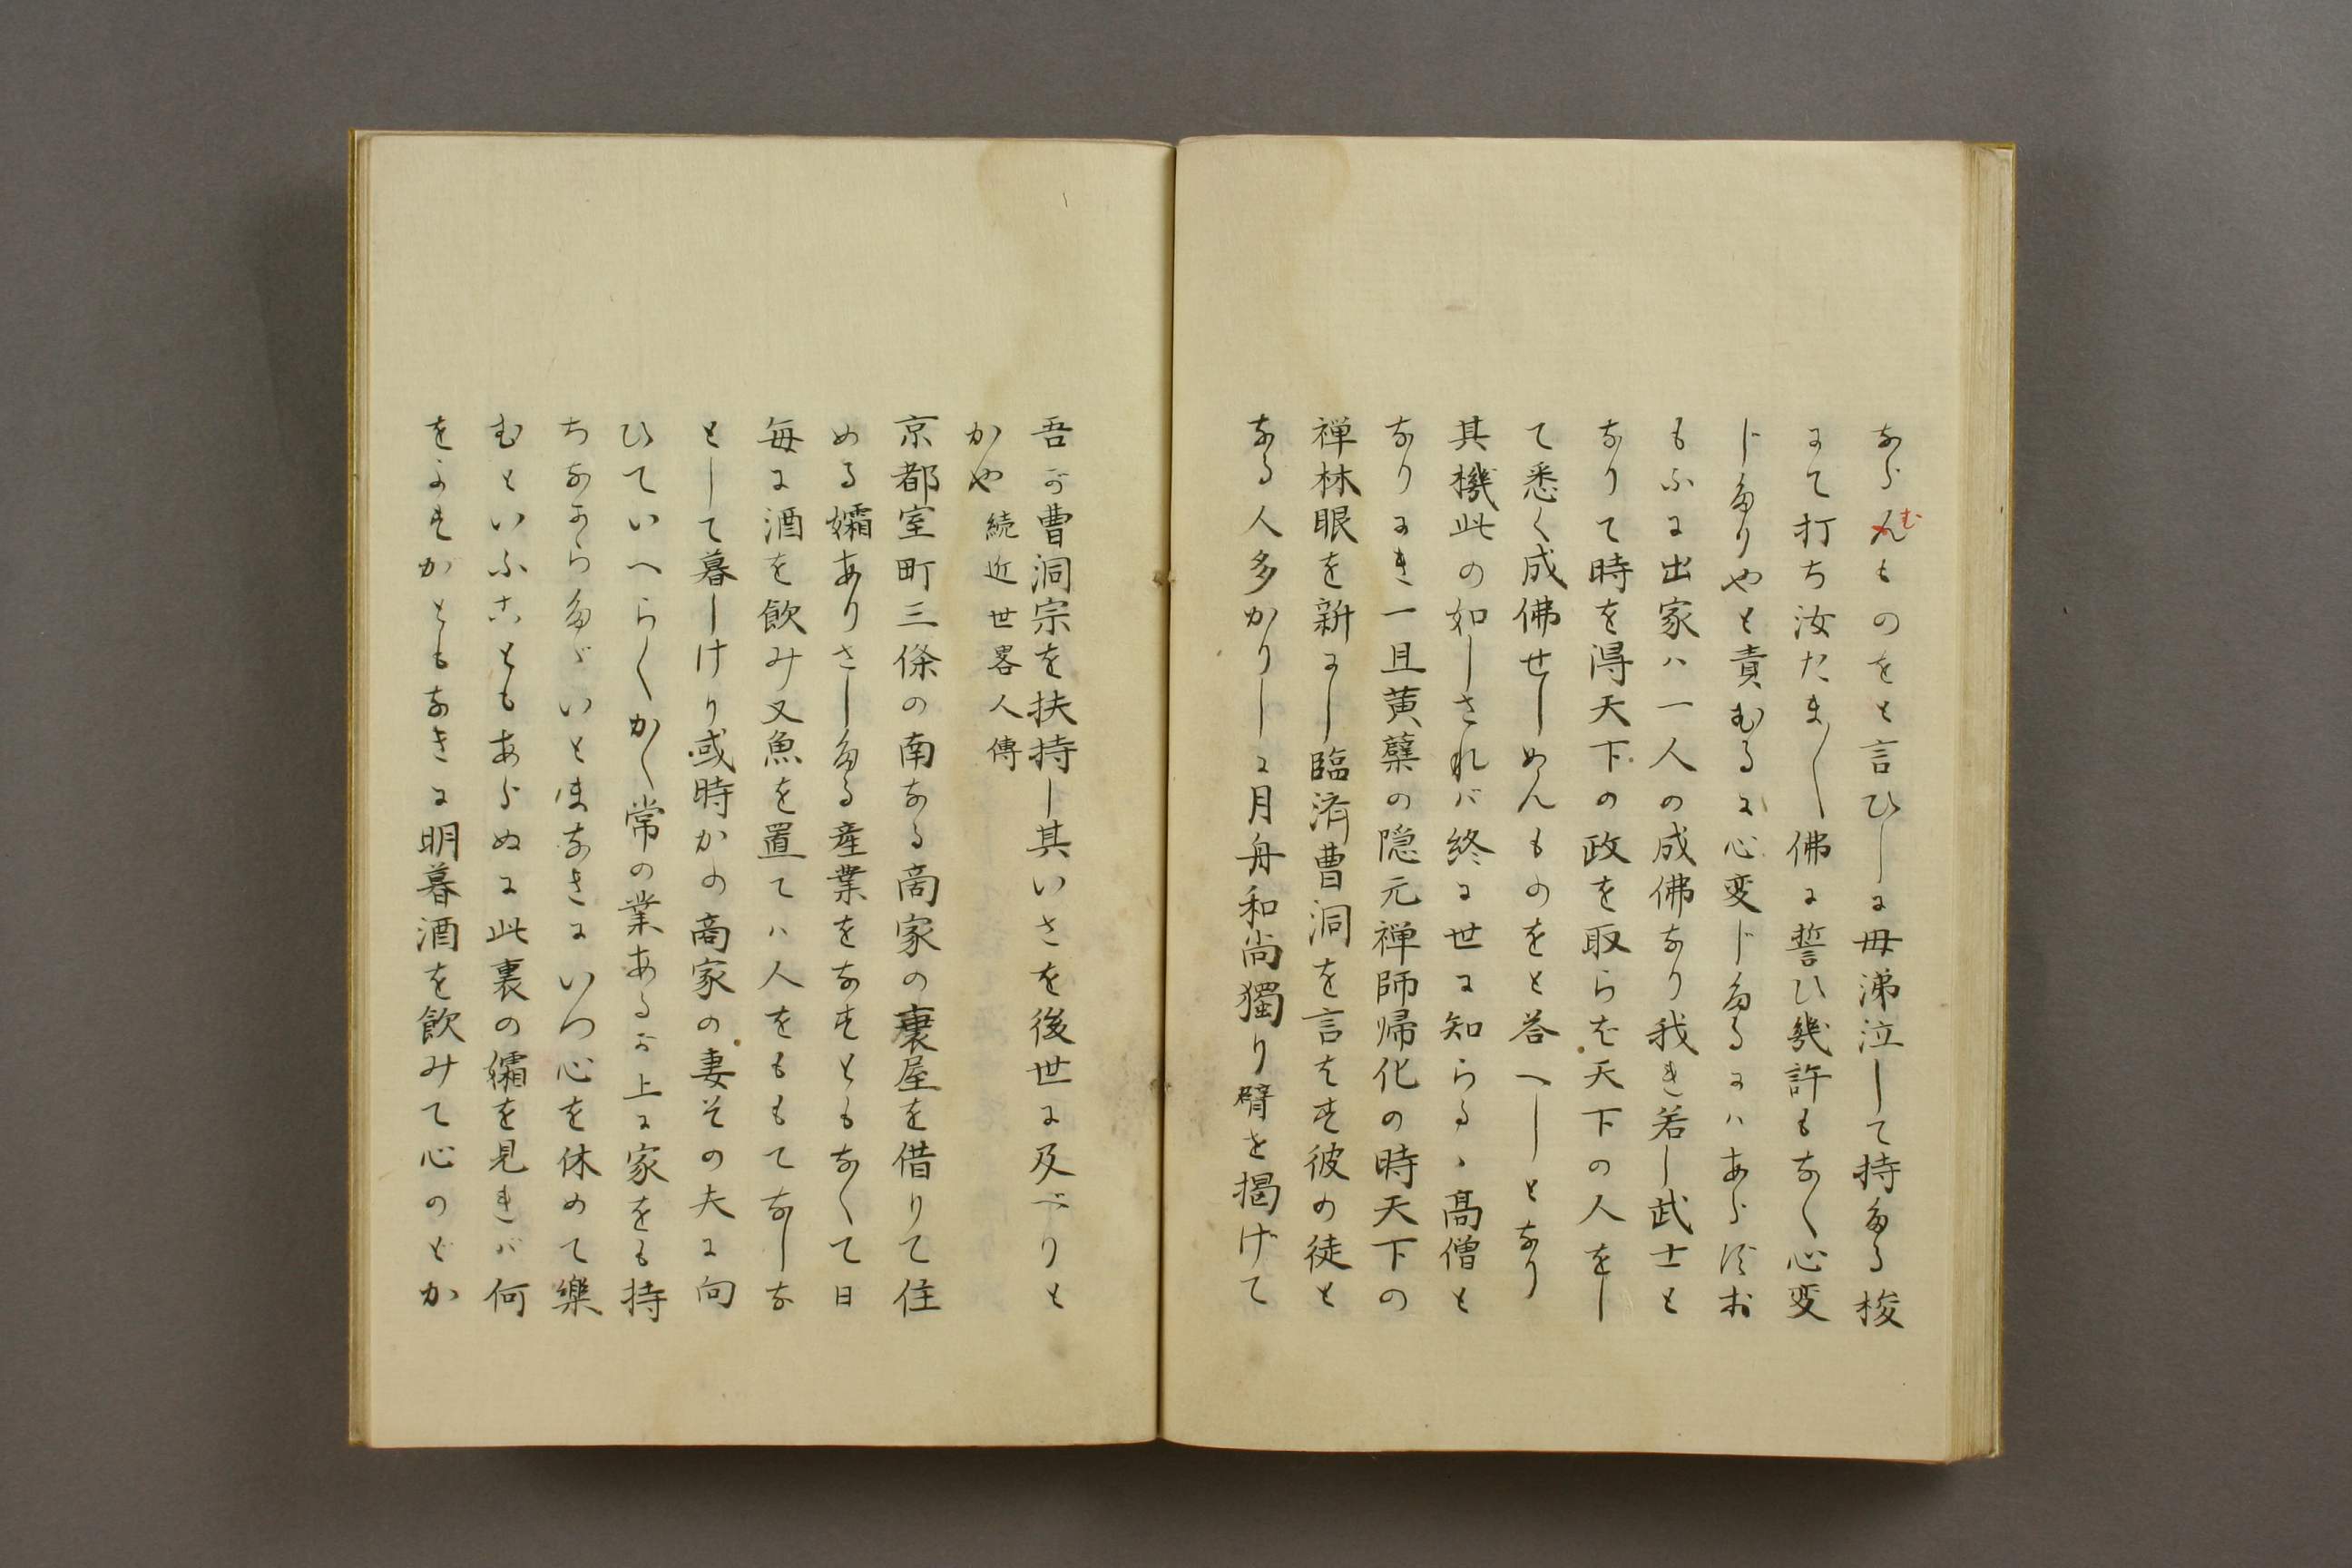 ならんむものをと言ひしに母涕泣して持たる梭
にて打ち汝たま〱佛に誓ひ幾許もなく心変
じたりやと責むるに心変じたるにハあらずお
もふに出家ハ一人の成佛なり我れ若し武士と
なりて時を得天下の政を取らば天下の人をし
て悉く成佛せしめんものをと答へしとなり
其機此の如しされバ終に世に知らるゝ高僧と
なりにき一旦黄檗の隠元禅師帰化の時天下の
禅林眼を新にし臨済曹洞を言はず彼の徒と
なる人多かりしに月舟和尚獨り臂を掲げて
吾が曹洞宗を扶持し其いさを後世に及べりと
かや 続近世畧人傳
京都室町三條の南なる商家の裏屋を借りて住
める孀ありさしたる産業をなすともなくて日
毎に酒を飲み又魚を置てハ人をももてなしな
として暮しけり或時かの商家の妻その夫に向
ひていへらくかく常の業あるが上に家をも持
ちながらたゞいとまなきにいつ心を休めて樂
むといふこともあらぬに此裏の孀を見れバ何
をよすがともなきに明暮酒を飲みて心のどか